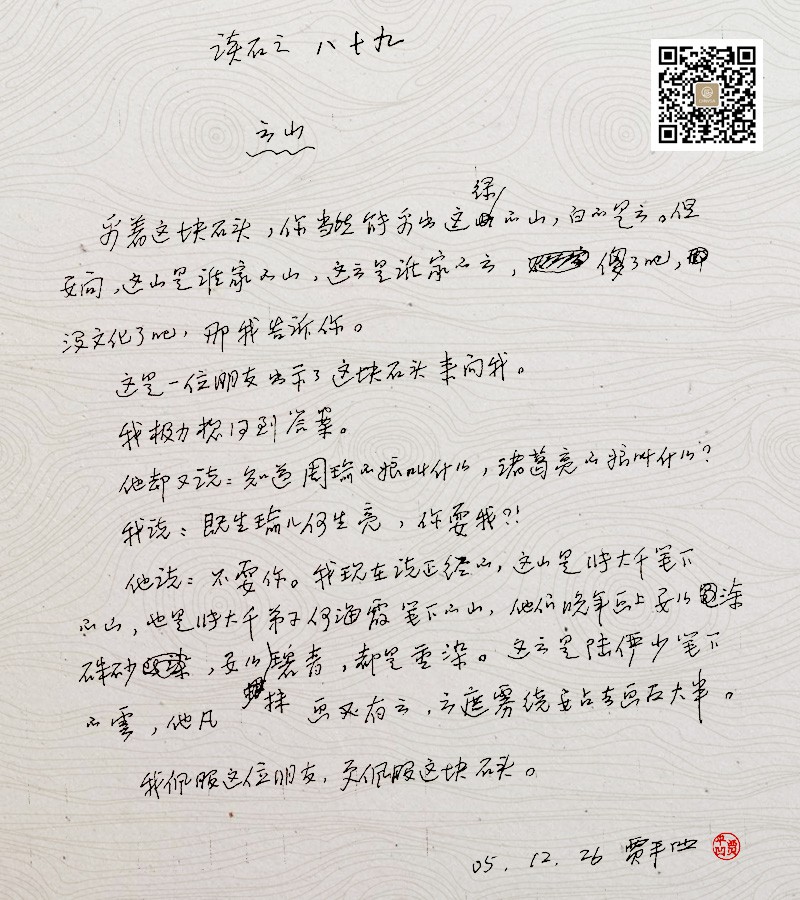 读石之 八十九
云山
看着这块石头，你当然能看出这绿的山，白的是云。但
要问，这山是谁家的山，这云是谁家的云，傻了吧，
没文化了吧，那我告诉你。
这是一位朋友出示了这块石头来问我。
我极力想得到答案。
他却又说：知道周瑜的娘叫什么，诸葛亮的娘叫什么？
我说：既生瑜儿何生亮，你耍我？！
他说：不耍你。我现在说正经的，这山是张大千笔下
的山，也是张大千弟子何海霞笔下的山，他们晚年画上要么涂
硃砂，要么碧青，都是重染。这云是陆俨少笔下
的雲，他凡抹画必有云，云遮雾绕要占去画面大半。
我佩服这位朋友，更佩服这块石头。
05.12.26 贾平凹
贾平凹